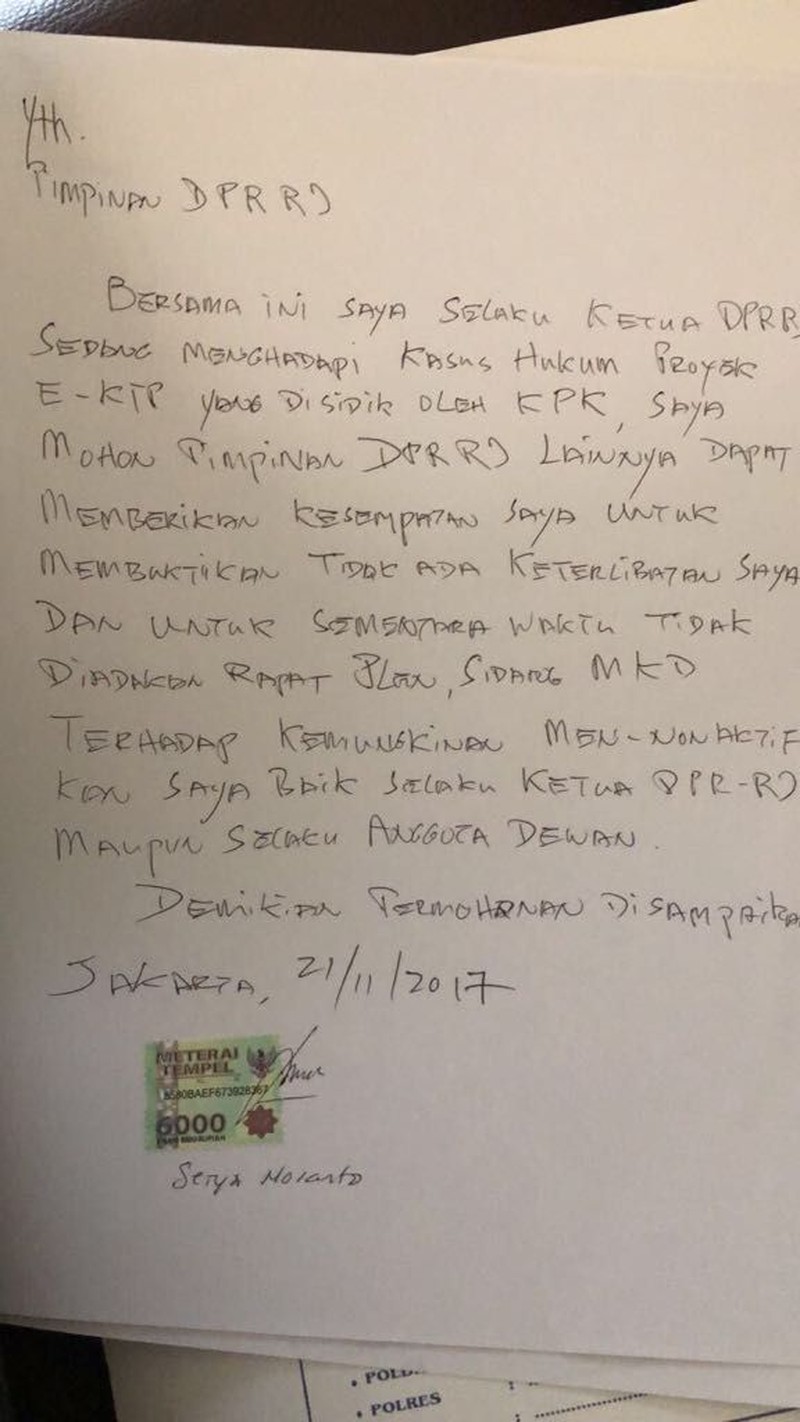 Yth.
PIMPINAN DPR RI
BERSAMA INI SAYA SELAKU KETUA DPR R
SEDANG MENGHADAPI KASUS HUKUM PROYEK
E-KTP YANG DISIDIK OLEH KPK, SAYA
MOHON PIMPINAN DPR RI LAINNYA DAPAT
MEMBERIKAN KESEMPATAN SAYA UNTUK
MEMBUKTIKAN TIDAK ADA KETERLIBATAN SAYA
DAN UNTUK SEMENTARA WAKTU TIDAK
DIADAKAN RAPAT PLENO, SIDANG MKD
TERHADAP KEMUNGKINAN MEN-NONAKTIF
KAN SAYA BAIK SELAKU KETUA DPR-RI
MAUPUN SELAKU ANGGOTA DEWAN.
DEMIKIAN PERMOHONAN DISAMPAIKA
JAKARTA, 21/11/2017
METERAI
TEMPEL
6000
Setya Novanto
. POLRES :